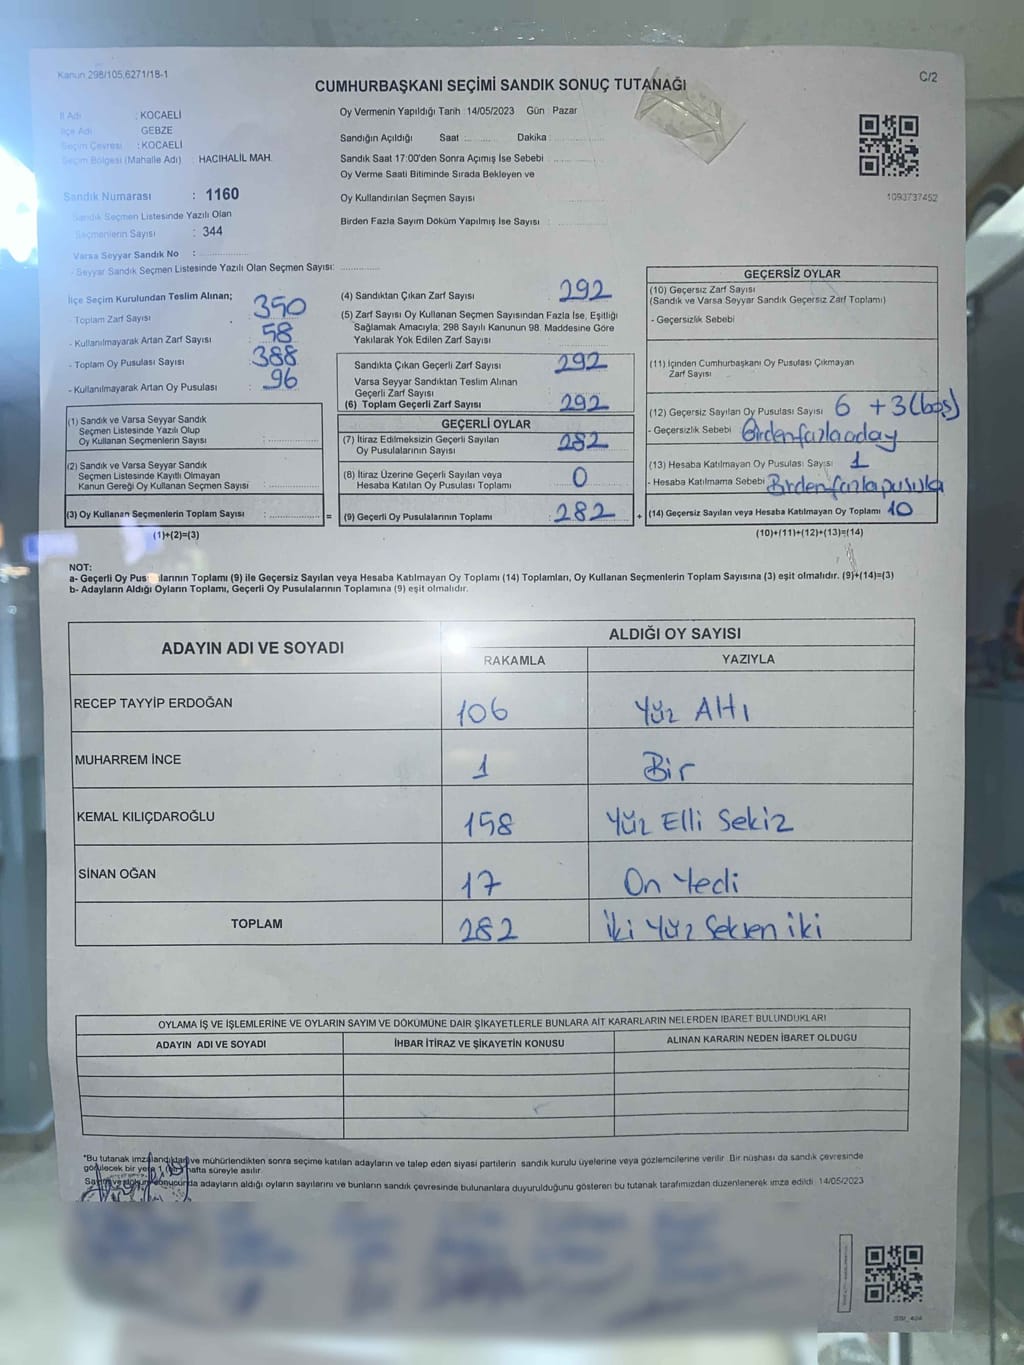 Kanun 298/105,6271/18-1
C/2
CUMHURBAŞKANI SEÇİMİ SANDIK SONUÇ TUTANAĞI
İl Adı : KOCAELİ
İlçe Adı GEBZE
Seçim Çevresi : KOCAELİ
Seçim Bölgesi (Mahalle Adı) HACIHALİL MAH.
Sandık Numarası : 1160
Sandık Seçmen Listesinde Yazılı Olan
Seçmenlerin Sayısı : 344
Varsa Seyyar Sandık No :
- Seyyar Sandık Seçmen Listesinde Yazılı Olan Seçmen Sayısı:
Oy Vermenin Yapıldığı Tarih :14/05/2023 Gün : Pazar
Sandığın Açıldığı Saat : Dakika :
Sandık Saat 17:00'den Sonra Açımış İse Sebebi
Oy Verme Saati Bitiminde Sırada Bekleyen ve
Oy Kullandırılan Seçmen Sayısı
Birden Fazla Sayım Döküm Yapılmış İse Sayısı :
1093737452
İlçe Seçim Kurulundan Teslim Alınan;
- Toplam Zarf Sayısı : 350
- Kullanılmayarak Artan Zarf Sayısı : 58
- Toplam Oy Pusulası Sayısı : 388
- Kullanılmayarak Artan Oy Pusulası : 96
(1) Sandık ve Varsa Seyyar Sandık
Seçmen Listesinde Yazılı Olup
Oy Kullanan Seçmenlerin Sayısı :
(2) Sandık ve Varsa Seyyar Sandık
Seçmen Listesinde Kayıtlı Olmayan
Kanun Gereği Oy Kullanan Seçmen Sayısı :
(3) Oy Kullanan Seçmenlerin Toplam Sayısı : =
(1)+(2)=(3)
(4) Sandıktan Çıkan Zarf Sayısı : 292
(5) Zarf Sayısı Oy Kullanan Seçmen Sayısından Fazla İse, Eşitliği
Sağlamak Amacıyla; 298 Sayılı Kanunun 98. Maddesine Göre
Yakılarak Yok Edilen Zarf Sayısı
Sandıkta Çıkan Geçerli Zarf Sayısı : 292
Varsa Seyyar Sandıktan Teslim Alınan
Geçerli Zarf Sayısı
(6) Toplam Geçerli Zarf Sayısı : 292
GEÇERLİ OYLAR
(7) İtiraz Edilmeksizin Geçerli Sayılan
Oy Pusulalarının Sayısı : 282
(8) İtiraz Üzerine Geçerli Sayılan veya
Hesaba Katılan Oy Pusulası Toplamı : 0
(9) Geçerli Oy Pusulalarının Toplamı : 282 +
GEÇERSİZ OYLAR
(10) Geçersiz Zarf Sayısı
(Sandık ve Varsa Seyyar Sandık Geçersiz Zarf Toplamı)
- Geçersizlik Sebebi
(11) İçinden Cumhurbaşkanı Oy Pusulası Çıkmayan
Zarf Sayısı
(12) Geçersiz Sayılan Oy Pusulası Sayısı 6 +3(boş)
- Geçersizlik Sebebi Birden fazla aday
(13) Hesaba Katılmayan Oy Pusulası Sayısı 1
- Hesaba Katılmama Sebebi Birden fazla pusula
(14) Geçersiz Sayılan veya Hesaba Katılmayan Oy Toplamı 10
(10)+(11)+(12)+(13)=(14)
NOT:
a- Geçerli Oy Pus larının Toplamı (9) ile Geçersiz Sayılan veya Hesaba Katılmayan Oy Toplamı (14) Toplamları, Oy Kullanan Seçmenlerin Toplam Sayısına (3) eşit olmalıdır. (9)+(14)=(3)
b- Adayların Aldığı Oyların Toplamı, Geçerli Oy Pusulalarının Toplamına (9) eşit olmalıdır.
ADAYIN ADI VE SOYADI ALDIĞI OY SAYISI
RAKAMLA YAZIYLA
RECEP TAYYİP ERDOĞAN 106 Yüz Altı
MUHARREM İNCE 1 Bir
KEMAL KILIÇDAROĞLU 158 Yüz Elli Sekiz
SİNAN OĞAN 17 On Yedi
TOPLAM 282 İki Yüz Seksen iki
OYLAMA İŞ VE İŞLEMLERİNE VE OYLARIN SAYIM VE DÖKÜMÜNE DAİR ŞİKAYETLERLE BUNLARA AİT KARARLARIN NELERDEN İBARET BULUNDUKLARI
ADAYIN ADI VE SOYADI İHBAR İTİRAZ VE ŞİKAYETİN KONUSU ALINAN KARARIN NEDEN İBARET OLDUĞU
*Bu tutanak imzalandıktan ve mühürlendikten sonra seçime katılan adayların ve talep eden siyasi partilerin sandık kurulu üyelerine veya gözlemcilerine verilir. Bir nüshası da sandık çevresinde
görülecek bir yere 1 hafta süreyle asılır.
adayların aldığı oyların sayılarını ve bunların sandık çevresinde bulunanlara duyurulduğunu gösteren bu tutanak tarafımızdan düzenlenerek imza edildi. 14/05/2023